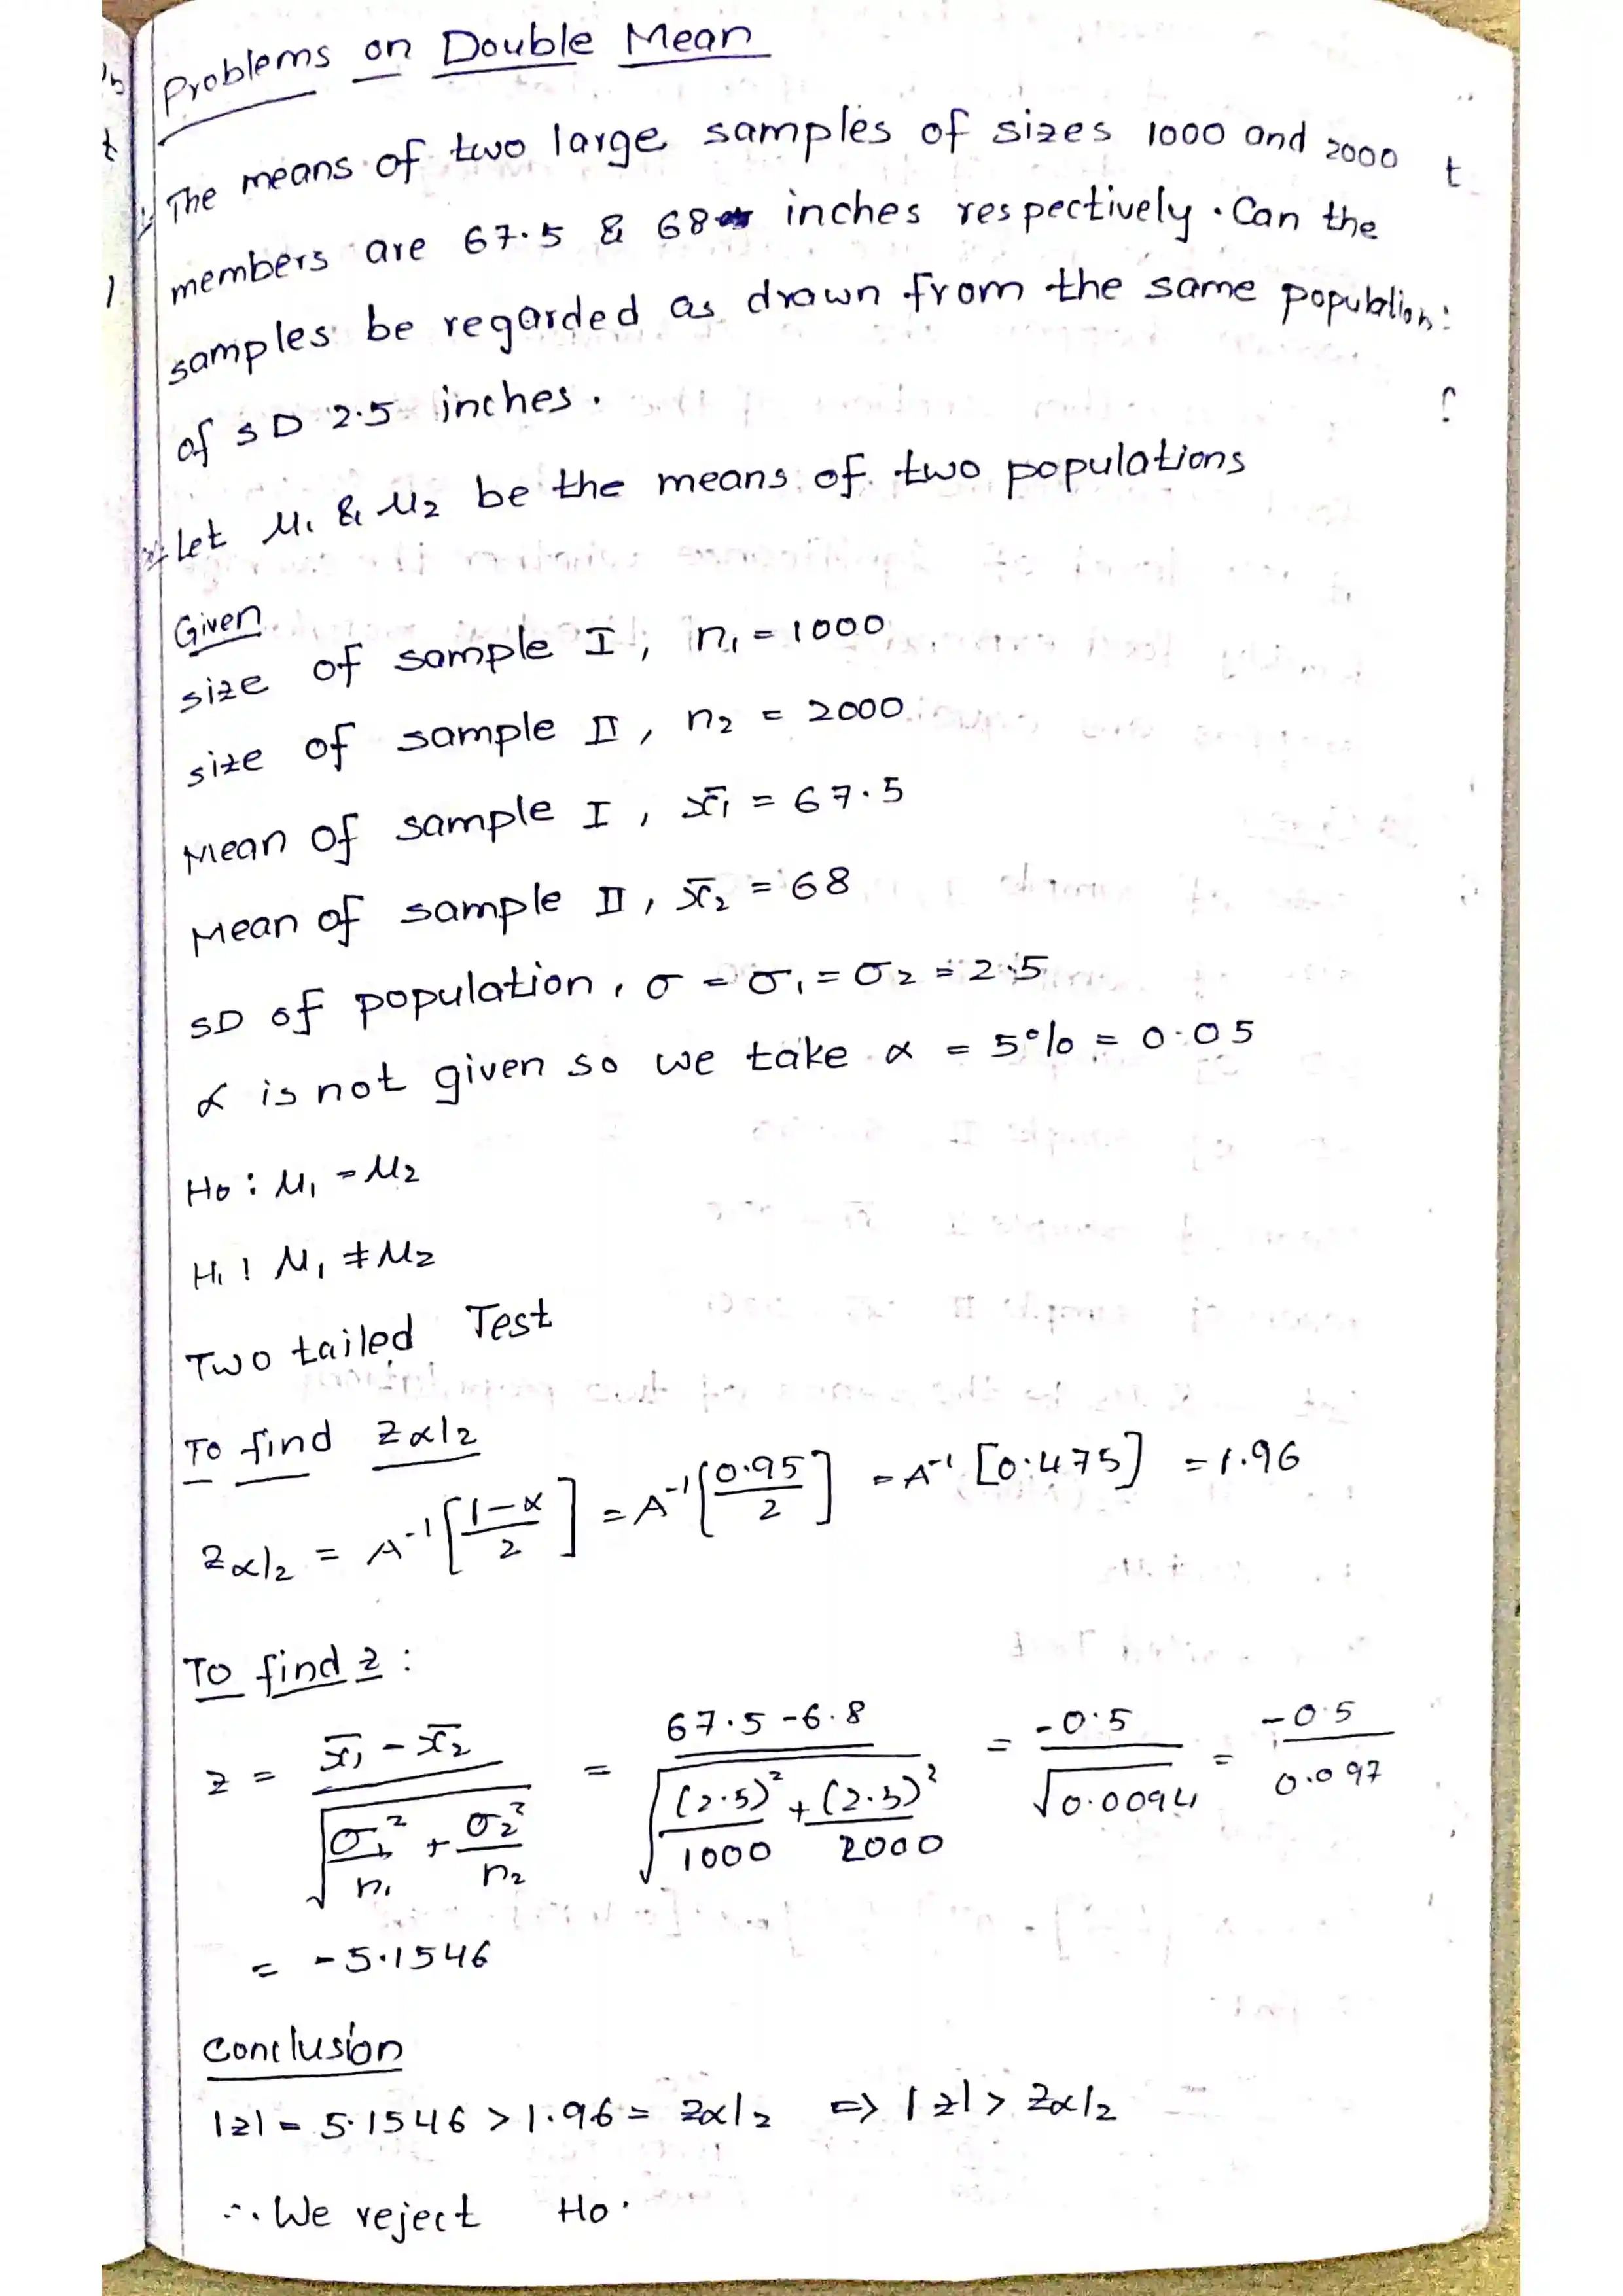 Problems on Double Mean
1) The means of two large samples of sizes 1000 and 2000
members are 67.5 & 68 inches respectively. Can the
samples be regarded as drawn from the same population:
of SD 2.5 inches.
Let μ₁ & μ₂ be the means of two populations
Given
size of sample I, n₁ = 1000
size of sample II, n₂ = 2000
Mean of sample I, x̄₁ = 67.5
Mean of sample II, x̄₂ = 68
SD of population, σ = σ₁ = σ₂ = 2.5
α is not given so we take α = 5% = 0.05
H₀ : μ₁ = μ₂
H₁ : μ₁ ≠ μ₂
Two tailed Test
To find Zα/2
Zα/2 = A⁻¹[(1-α)/2] = A⁻¹[0.95/2] = A⁻¹[0.475] = 1.96
To find z :
z = (x̄₁ - x̄₂)/√(σ₁²/n₁ + σ₂²/n₂) = (67.5 - 6.8)/√((2.5)²/1000 + (2.5)²/2000) = -0.5/√0.0094 = -0.5/0.097
= -5.1546
Conclusion
|z| = 5.1546 > 1.96 = Zα/2 => |z| > Zα/2
∴ We reject H₀.